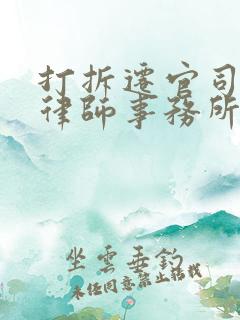 打拆遷官司
律師事務所
坐雲垂釣
未经同意禁止转载